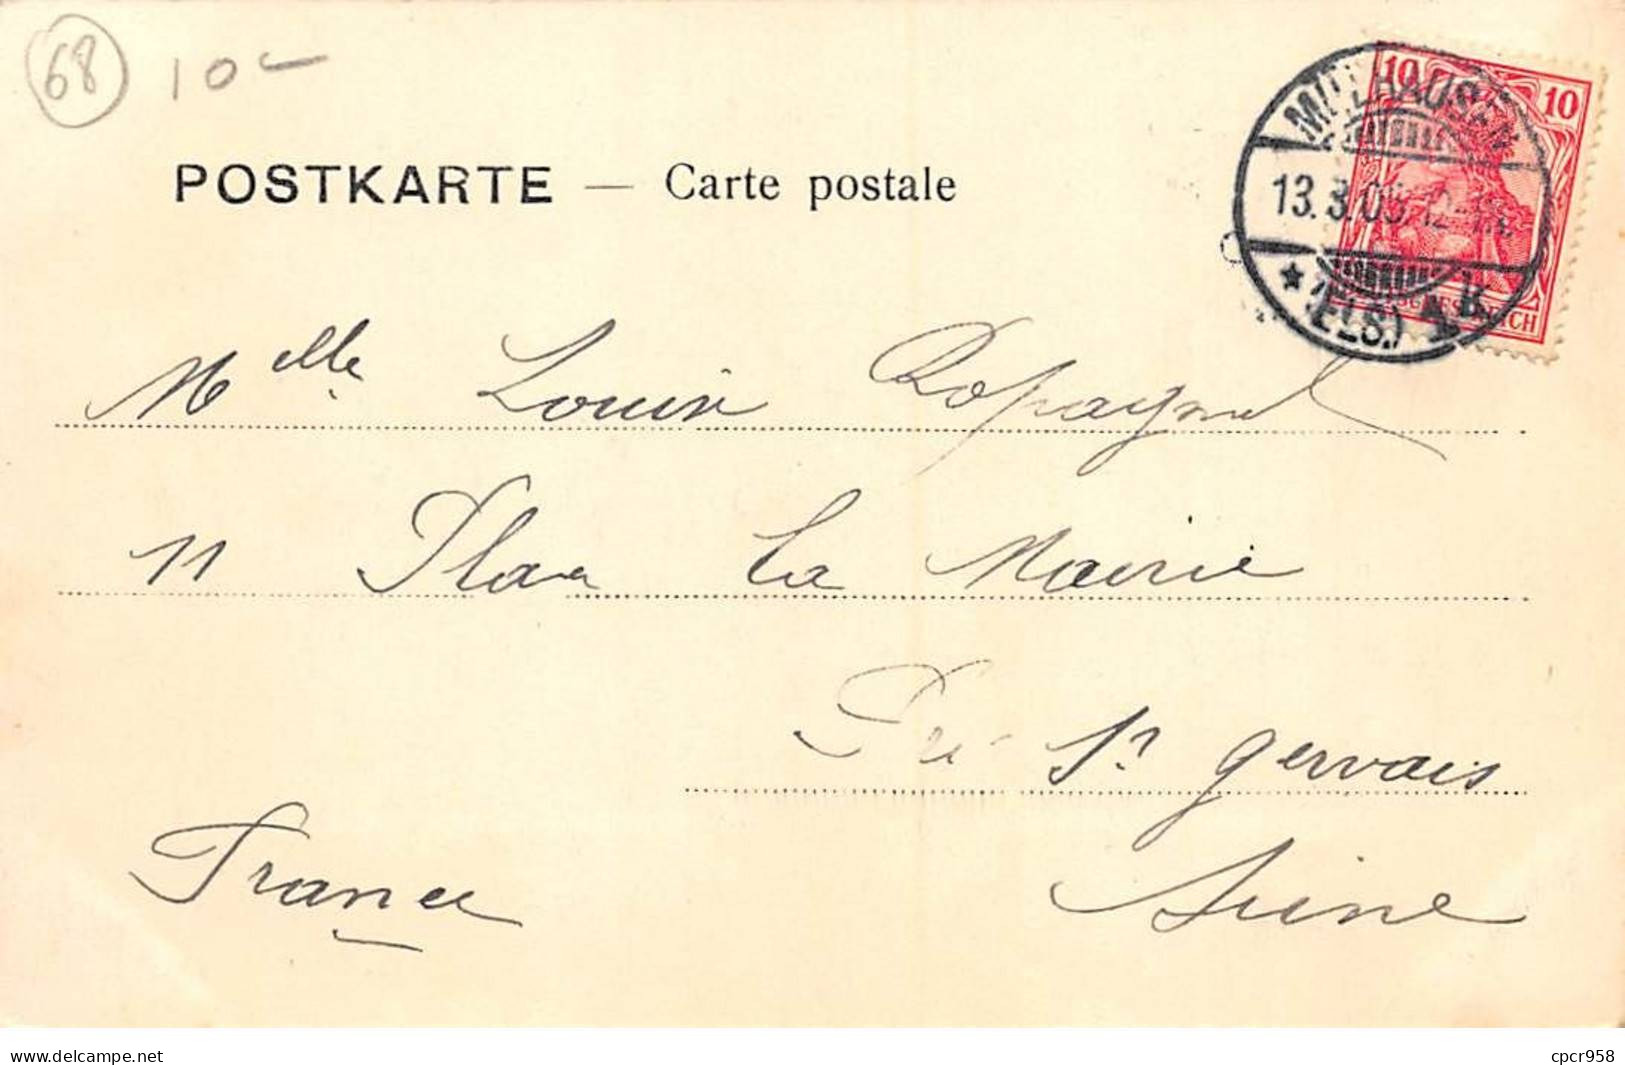 68 10
POSTKARTE — Carte postale
10 10
MÜLHAUSEN
13.3.05 12-1N.
* (ELS.) 1 K
REICH
Melle Louise
11 Place la Mairie
Pré St gervais
Seine
France
cpcr958.delcampe.net cpcr958